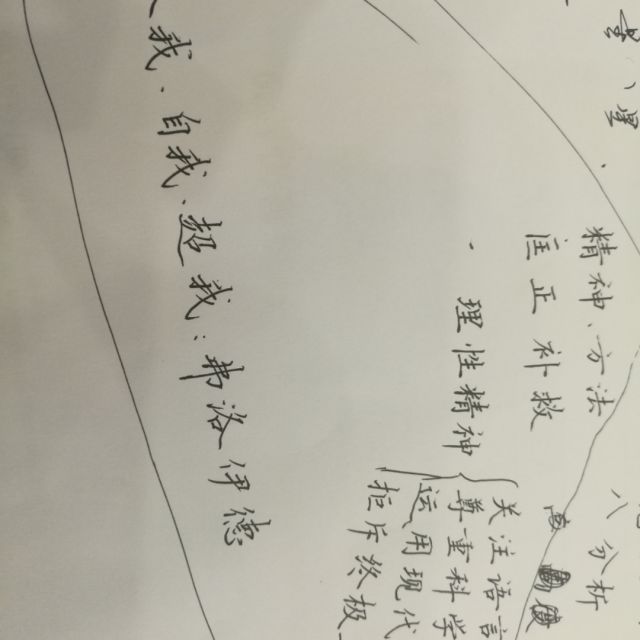 精神、方法
匡正补救
· 理性精神
关注语言
尊重科学
运用现代
拒斥终极
我·自我、超我：弗洛伊德
分析